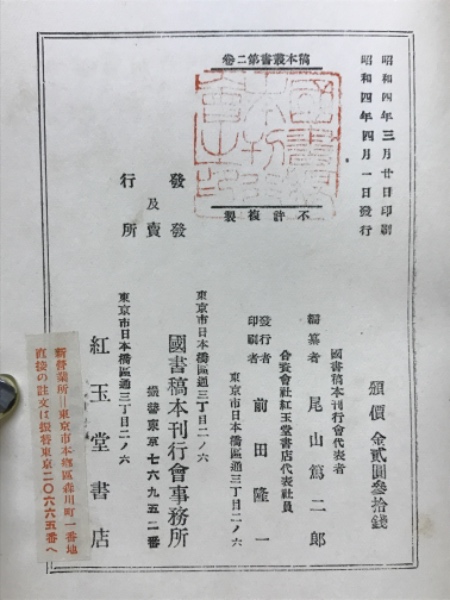 昭和四年三月廿日印刷
昭和四年四月一日發行
稿本叢書第二卷
不許複製
國書稿
本刊行
會之印
頒價金貳圓參拾錢
國書稿本刊行會代表者
編纂者 尾山篤二郎
合資會社紅玉堂書店代表社員
發行者
印刷者 前田隆一
東京市日本橋區通三丁目二ノ六
發發
及賣
行所
東京市日本橋區通三丁目二ノ六
國書稿本刊行會事務所
振替東京七六九五二番
東京市日本橋區通三丁目二ノ六
紅玉堂書店
新營業所―東京市本鄕區森川町一番地
直接の註文は振替東京二〇六六五番へ